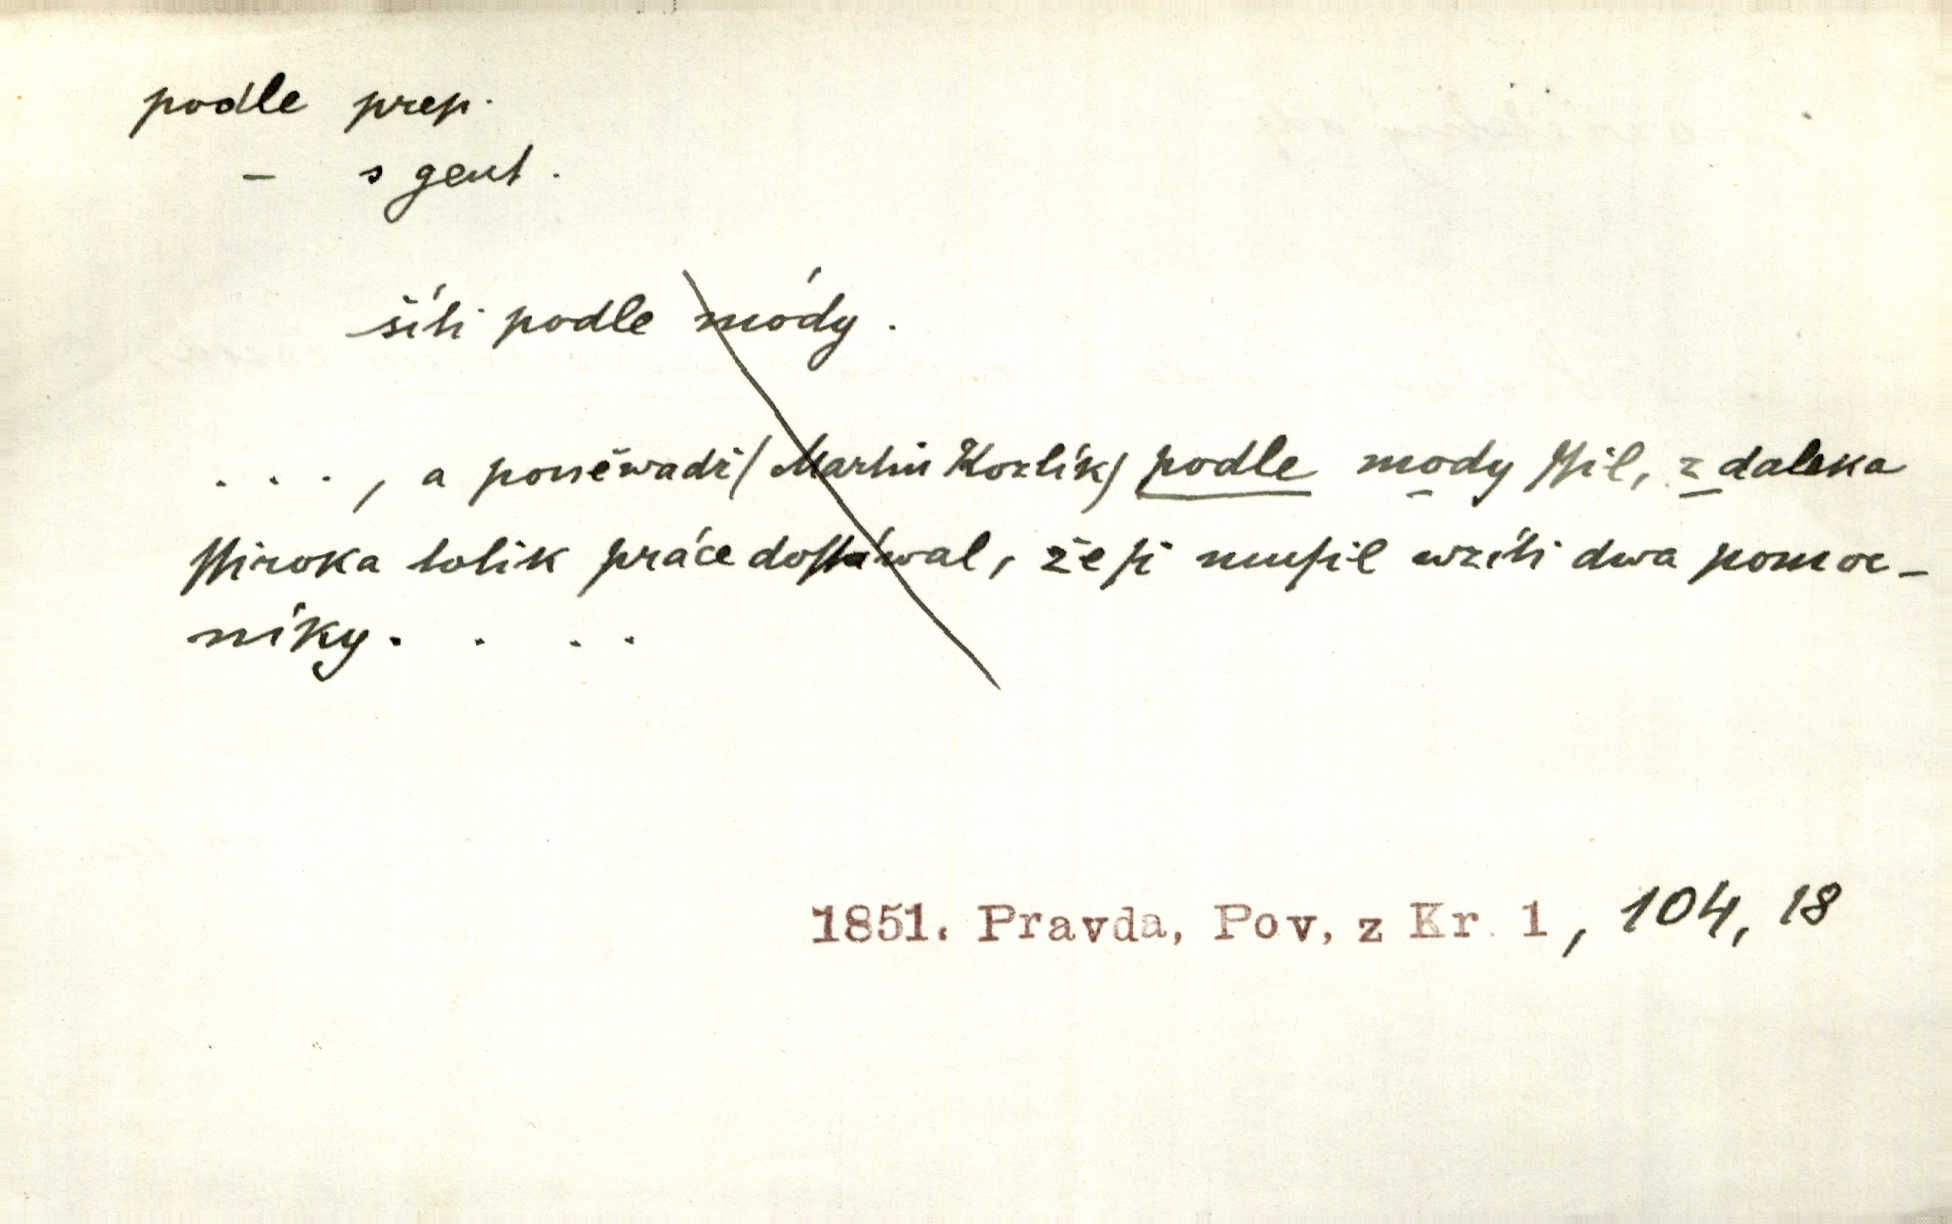 podle prep.
– s gent.
šíti podle módy.
. . . , a poněwadž / Martin Kozlík / podle mody ſſil, z daleka
ſſiroka tolik práce doſtáwal, že ſi muſil wzíti dwa pomoc-
níky. . . .
1851. Pravda, Pov, z Kr. 1, 104, 18